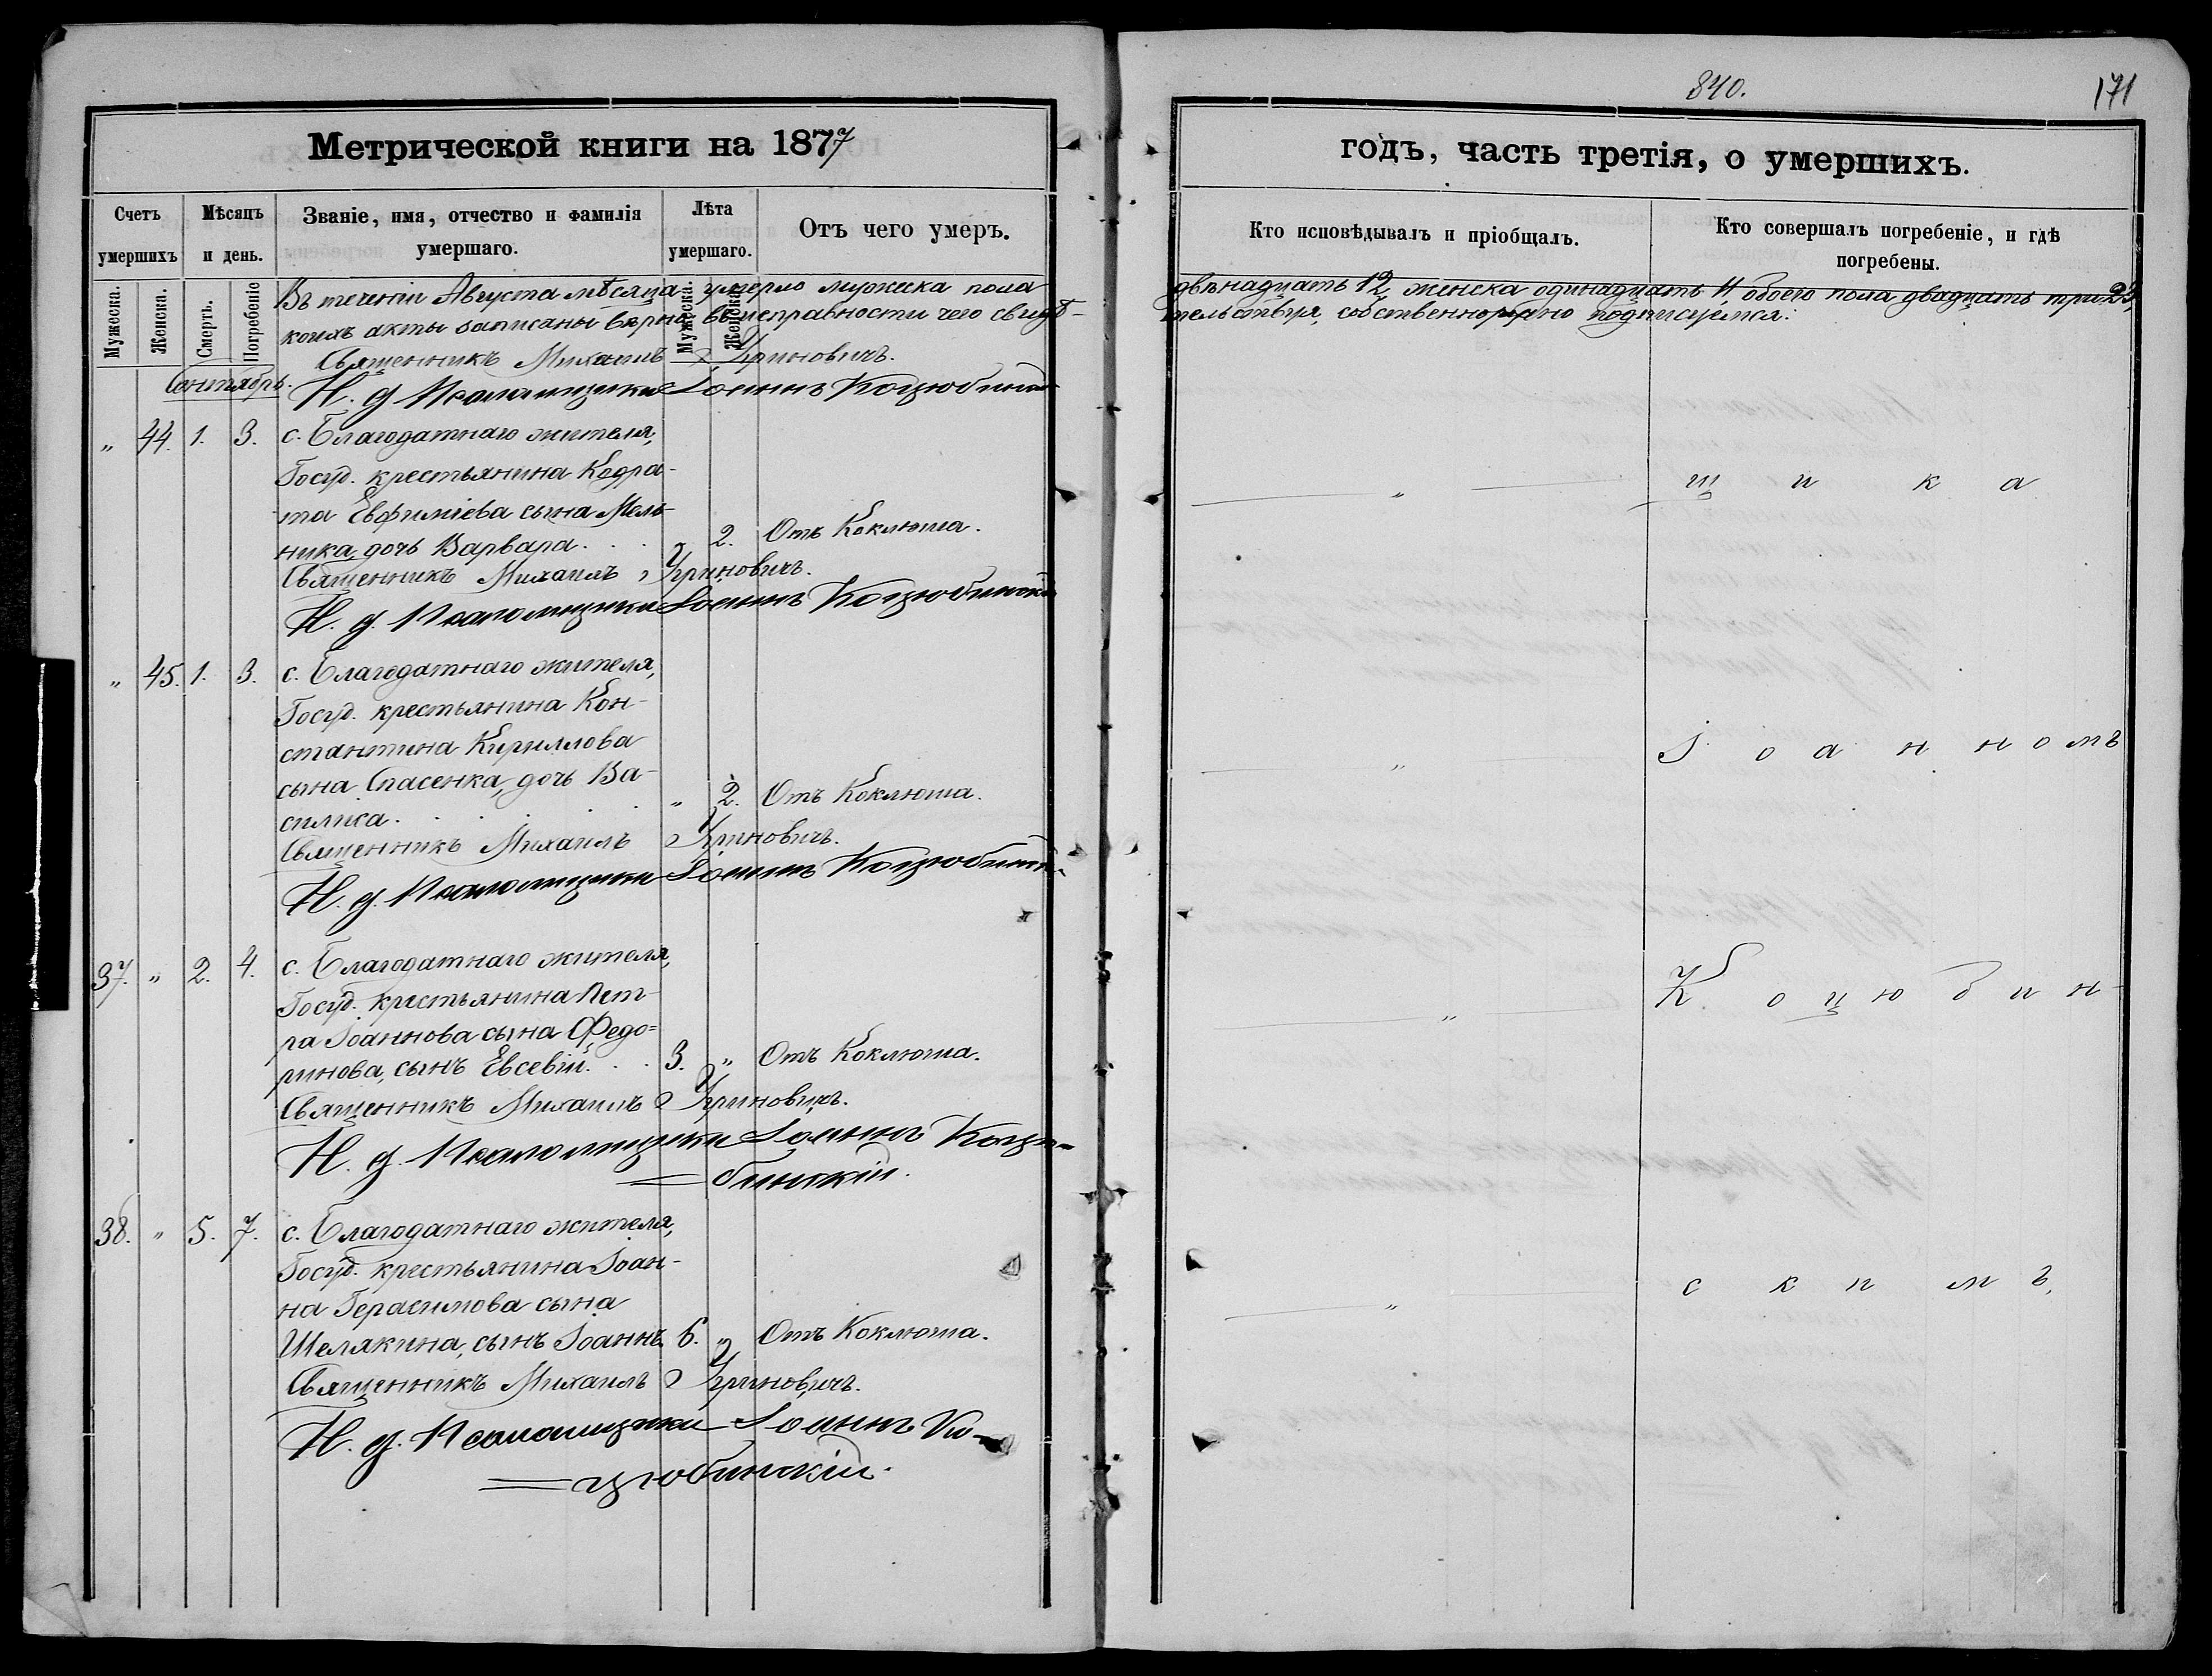 840.
171
Метрической книги на 1877
годъ, часть третія, о умершихъ.
Счетъ умершихъ
Мѣсяцъ и день.
Званіе, имя, отчество и фамилія умершаго.
Лѣта умершаго.
Отъ чего умеръ.
Кто исповѣдывалъ и пріобщалъ.
Кто совершалъ погребеніе, и гдѣ погребены.
Мужеска.
Женска.
Смерть.
Погребеніе
Мужеска.
Женска.
Въ теченіи Августа мѣсяца умерло мужеска пола двѣнадцать 12, женска одинадцать 11, обоего пола двадцать три 23,
коихъ акты записаны вѣрно, въ исправности чего свидѣ-тельствуя, собственноручно подписуемся:
Священникъ Михаилъ Гриновичъ.
Сентябрь.
И. д. Псаломщика Іоаннъ Коцюбинскій
" 44. 1. 3. с. Благодатнаго жителя,
Госуд. крестьянина Кодра-
та Евфиміева сына Мель-
ника, дочь Варвара. . . " 2. Отъ Коклюша. " щ и к а
Священникъ Михаилъ Гриновичъ.
И. д. Псаломщика Іоаннъ Коцюбинскій
" 45. 1. 3. с. Благодатнаго жителя,
Госуд. крестьянина Кон-
стантина Кириллова
сына Спасенка, дочь Ва-
силиса. . . . " 2. Отъ Коклюша. " І о а н н о мъ
Священникъ Михаилъ Гриновичъ.
И. д. Псаломщика Іоаннъ Коцюбинскій
37. " 2. 4. с. Благодатнаго жителя,
Госуд. крестьянина Пет-
ра Іоаннова сына Федо-
ринова, сынъ Евсевій. . . 3. " Отъ Коклюша. " К о ц ю б и н-
Священникъ Михаилъ Гриновичъ.
И. д. Псаломщика Іоаннъ Коцю-
бинскій.
38. " 5. 7. с. Благодатнаго жителя,
Госуд. крестьянина Іоан-
на Герасимова сына
Шелякина, сынъ Іоаннъ. 6. " Отъ Коклюша. " с к и м ъ,
Священникъ Михаилъ Гриновичъ.
И. д. Псаломщика Іоаннъ Ко-
цюбинскій.